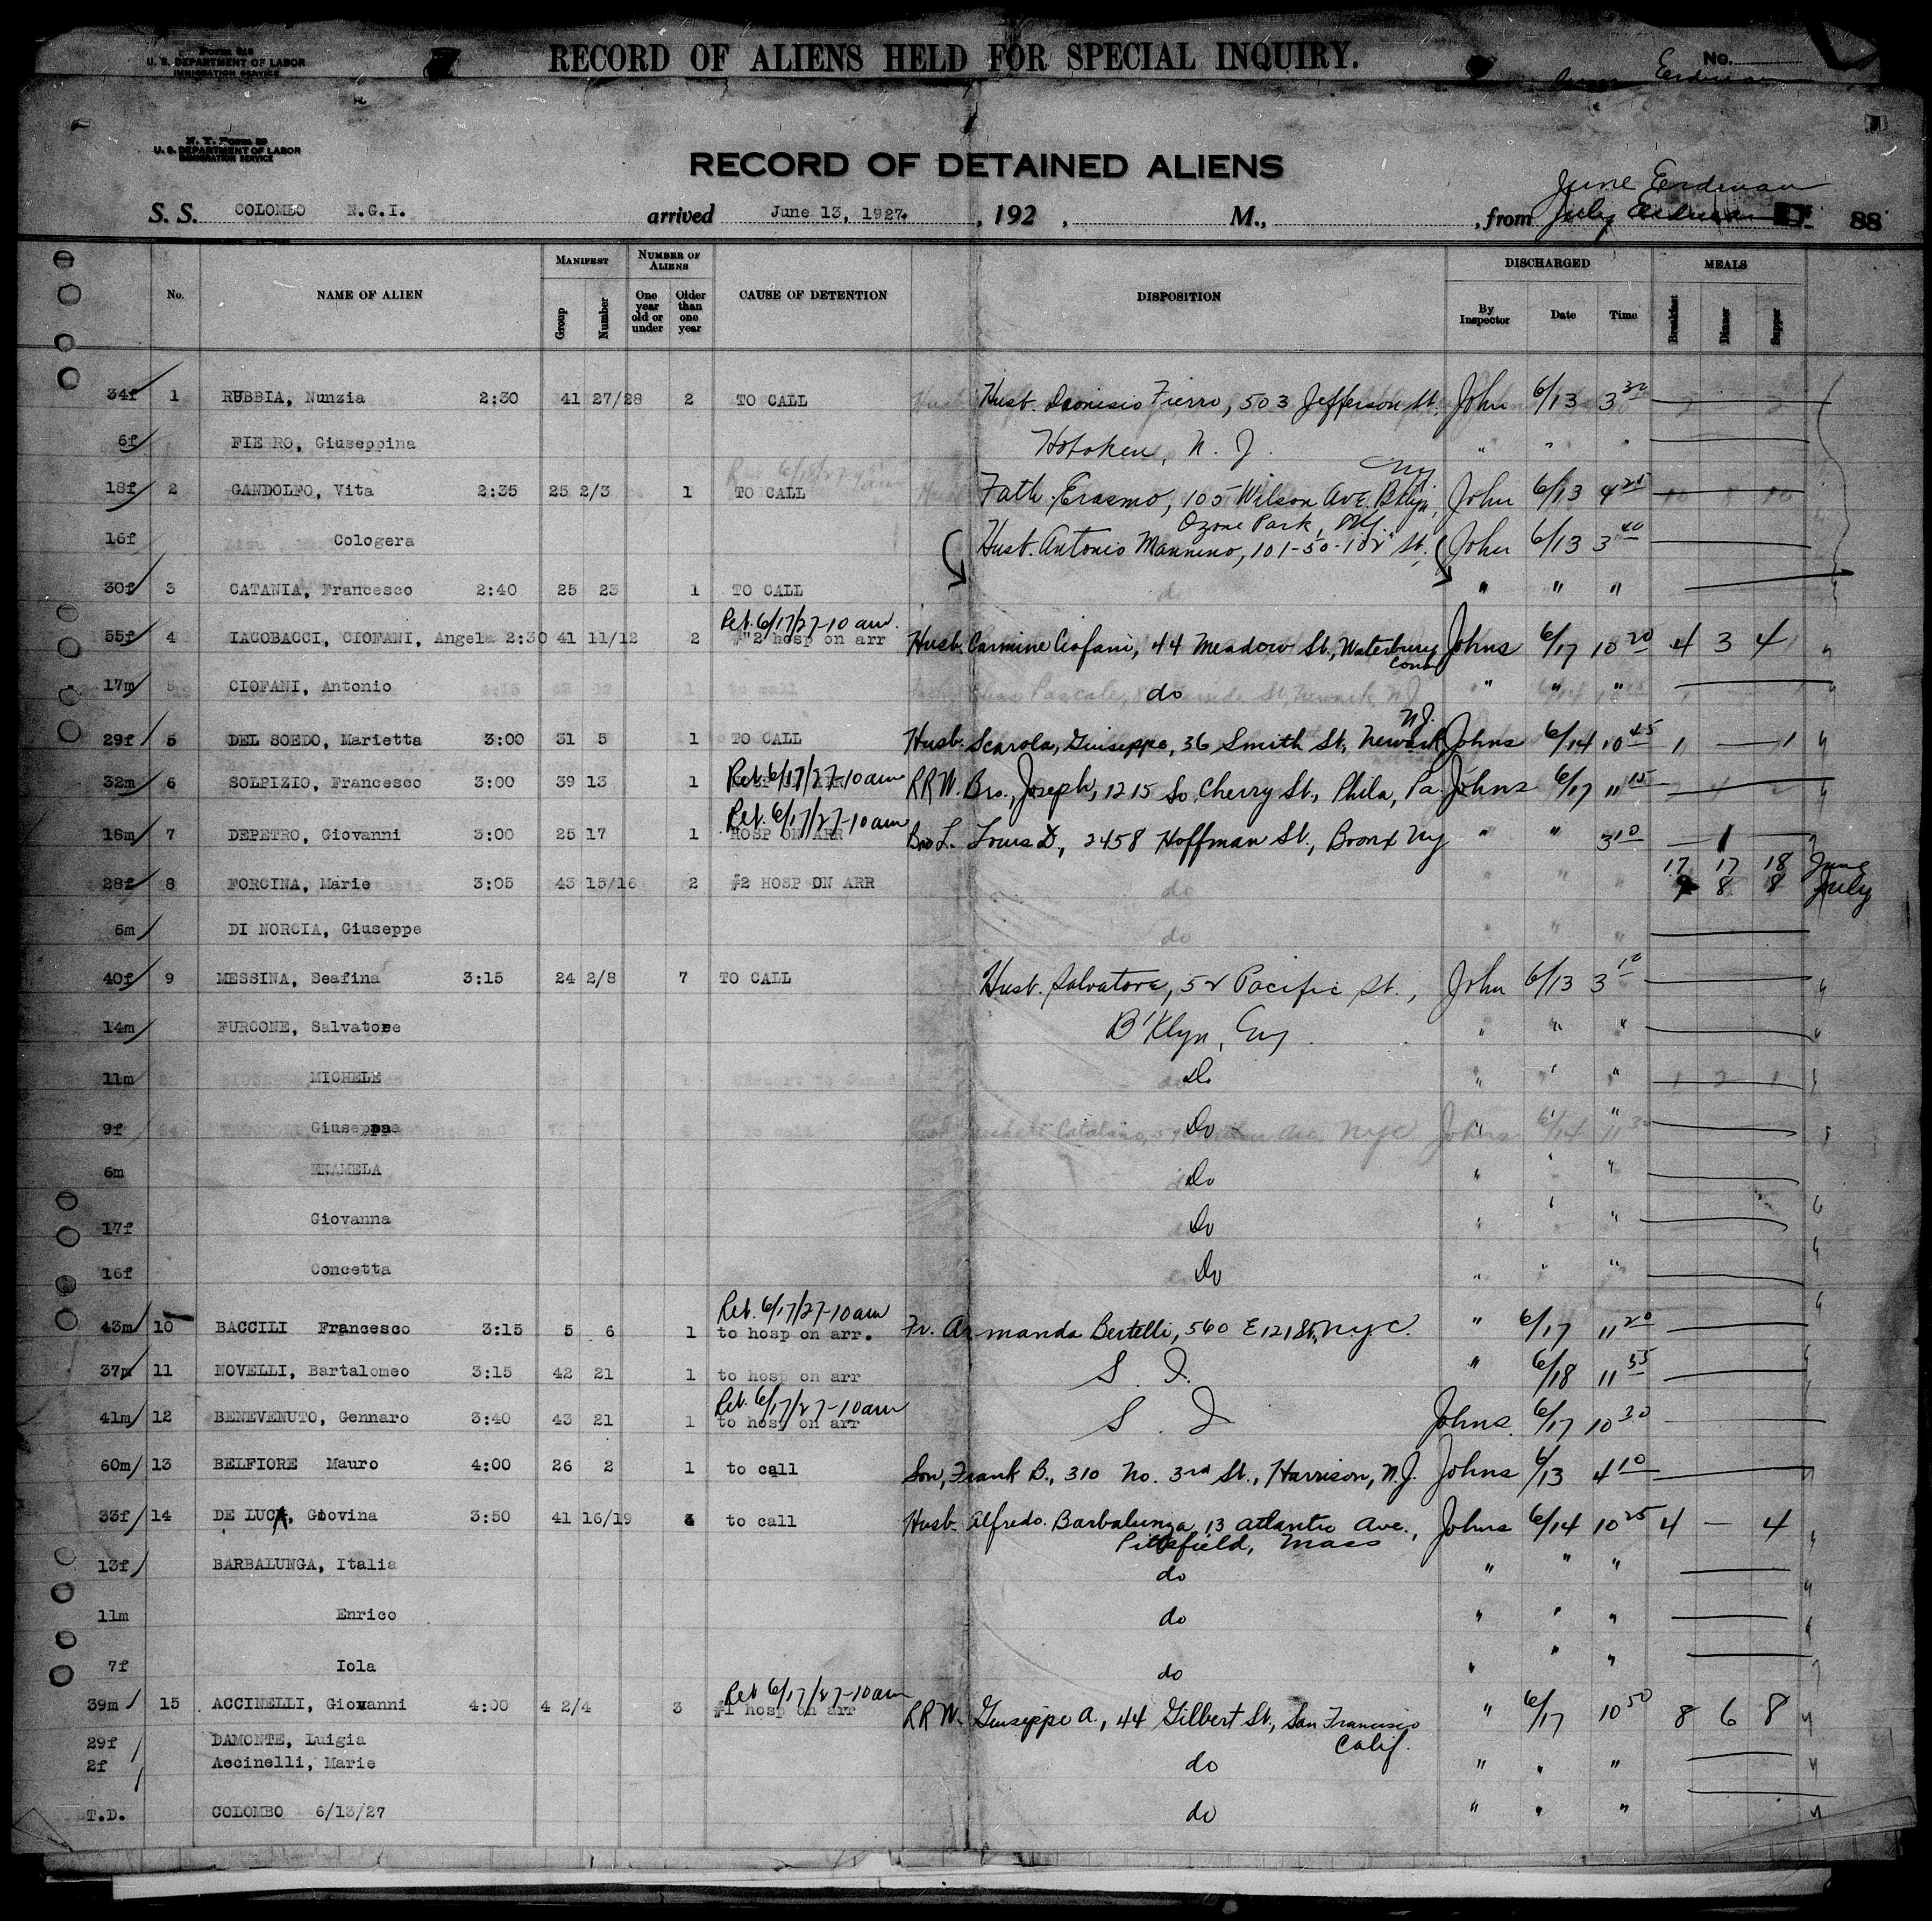 Form 618
U. S. DEPARTMENT OF LABOR
IMMIGRATION SERVICE
RECORD OF ALIENS HELD FOR SPECIAL INQUIRY.
No.
N. Y. Form 20
U. S. DEPARTMENT OF LABOR
IMMIGRATION SERVICE
RECORD OF DETAINED ALIENS
June Erdman
S. S. COLOMBO N.G.I. arrived June 13, 1927. , 192 , M., , from July 88
No. NAME OF ALIEN MANIFEST Group Number NUMBER OF ALIENS One year old or under Older than one year CAUSE OF DETENTION DISPOSITION DISCHARGED By Inspector Date Time MEALS Breakfast Dinner Supper
34f 1 RUBBIA, Nunzia 2:30 41 27/28 2 TO CALL Husb. Dionisio Fierro, 503 Jefferson St. John 6/13 3 30
6f FIERRO, Giuseppina Hoboken, N. J. " " "
NY
18f 2 GANDOLFO, Vita 2:35 25 2/3 1 TO CALL Fath. Erasmo, 105 Wilson Ave. Bklyn, John 6/13 4 25
Ozone Park, NY.
16f Cologera Husb. Antonio Mannino, 101-50-102" St. John 6/13 3 40
30f 3 CATANIA, Francesco 2:40 25 23 1 TO CALL " " "
Ret. 6/17/27-10 am.
55f 4 IACOBACCI, CIOFANI, Angela 2:30 41 11/12 2 #2 hosp on arr Husb. Carmine Ciofani, 44 Meadow St., Waterbury Johns 6/17 10 20 4 3 4 "
Conn
17m CIOFANI, Antonio do " " " "
N.J.
29f 5 DEL SOEDO, Marietta 3:00 31 5 1 TO CALL Husb. Scarola, Giuseppe, 36 Smith St., Newark Johns 6/14 10 45 1 — 1 "
32m 6 SOLPIZIO, Francesco 3:00 39 13 1 Ret. 6/17/27-10am RRW. Bro., Joseph, 1215 So. Cherry St., Phila, Pa. Johns 6/17 11 15 "
Ret. 6/17/27-10am
16m 7 DEPETRO, Giovanni 3:00 25 17 1 HOSP ON ARR Bro L. Louis D, 2458 Hoffman St., Bronx NY " " 3 10 — 1 —
17 17 18 June
28f 8 FORCINA, Marie 3:05 43 15/16 2 #2 HOSP ON ARR 8 8 July
6m DI NORCIA, Giuseppe
40f 9 MESSINA, Seafina 3:15 24 2/8 7 TO CALL Husb. Salvatore, 52 Pacific St., John 6/13 3 10 "
14m FURCONE, Salvatore B'Klyn, " " " "
11m MICHELE Do " " "
9f Giuseppa Do " " "
6m ENAMELA Do " " "
17f Giovanna Do " " "
16f Concetta Do " " "
Ret. 6/17/27-10am
43m 10 BACCILI Francesco 3:15 5 6 1 to hosp on arr. Fr. Armanda Bertelli, 560 E 121 St, NYC. " 6/17 11 20
37m 11 NOVELLI, Bartalomeo 3:15 42 21 1 to hosp on arr S. I. " 6/18 11 55
Ret. 6/17/27-10am
41m 12 BENEVENUTO, Gennaro 3:40 43 21 1 to hosp on arr S. I Johns. 6/17 10 30
60m 13 BELFIORE Mauro 4:00 26 2 1 to call Son, Frank B., 310 No. 3rd St., Harrison, N.J. Johns 6/13 4 10
33f 14 DE LUCA, Giovina 3:50 41 16/19 4 to call Husb. Alfredo. Barbalunga, 13 Atlantic Ave., Johns 6/14 10 25 4 — 4 "
Pittsfield, Mass
13f BARBALUNGA, Italia do " " "
11m Enrico do " " "
7f Iola do " " "
Ret 6/17/27-10am
39m 15 ACCINELLI, Giovanni 4:00 4 2/4 3 #1 hosp on arr RRW. Giuseppe A., 44 Gilbert St., San Francisco " 6/17 10 50 8 6 8 "
Calif.
29f DAMONTE, Luigia
2f Accinelli, Marie do " " "
T.D. COLOMBO 6/13/27 do " " "